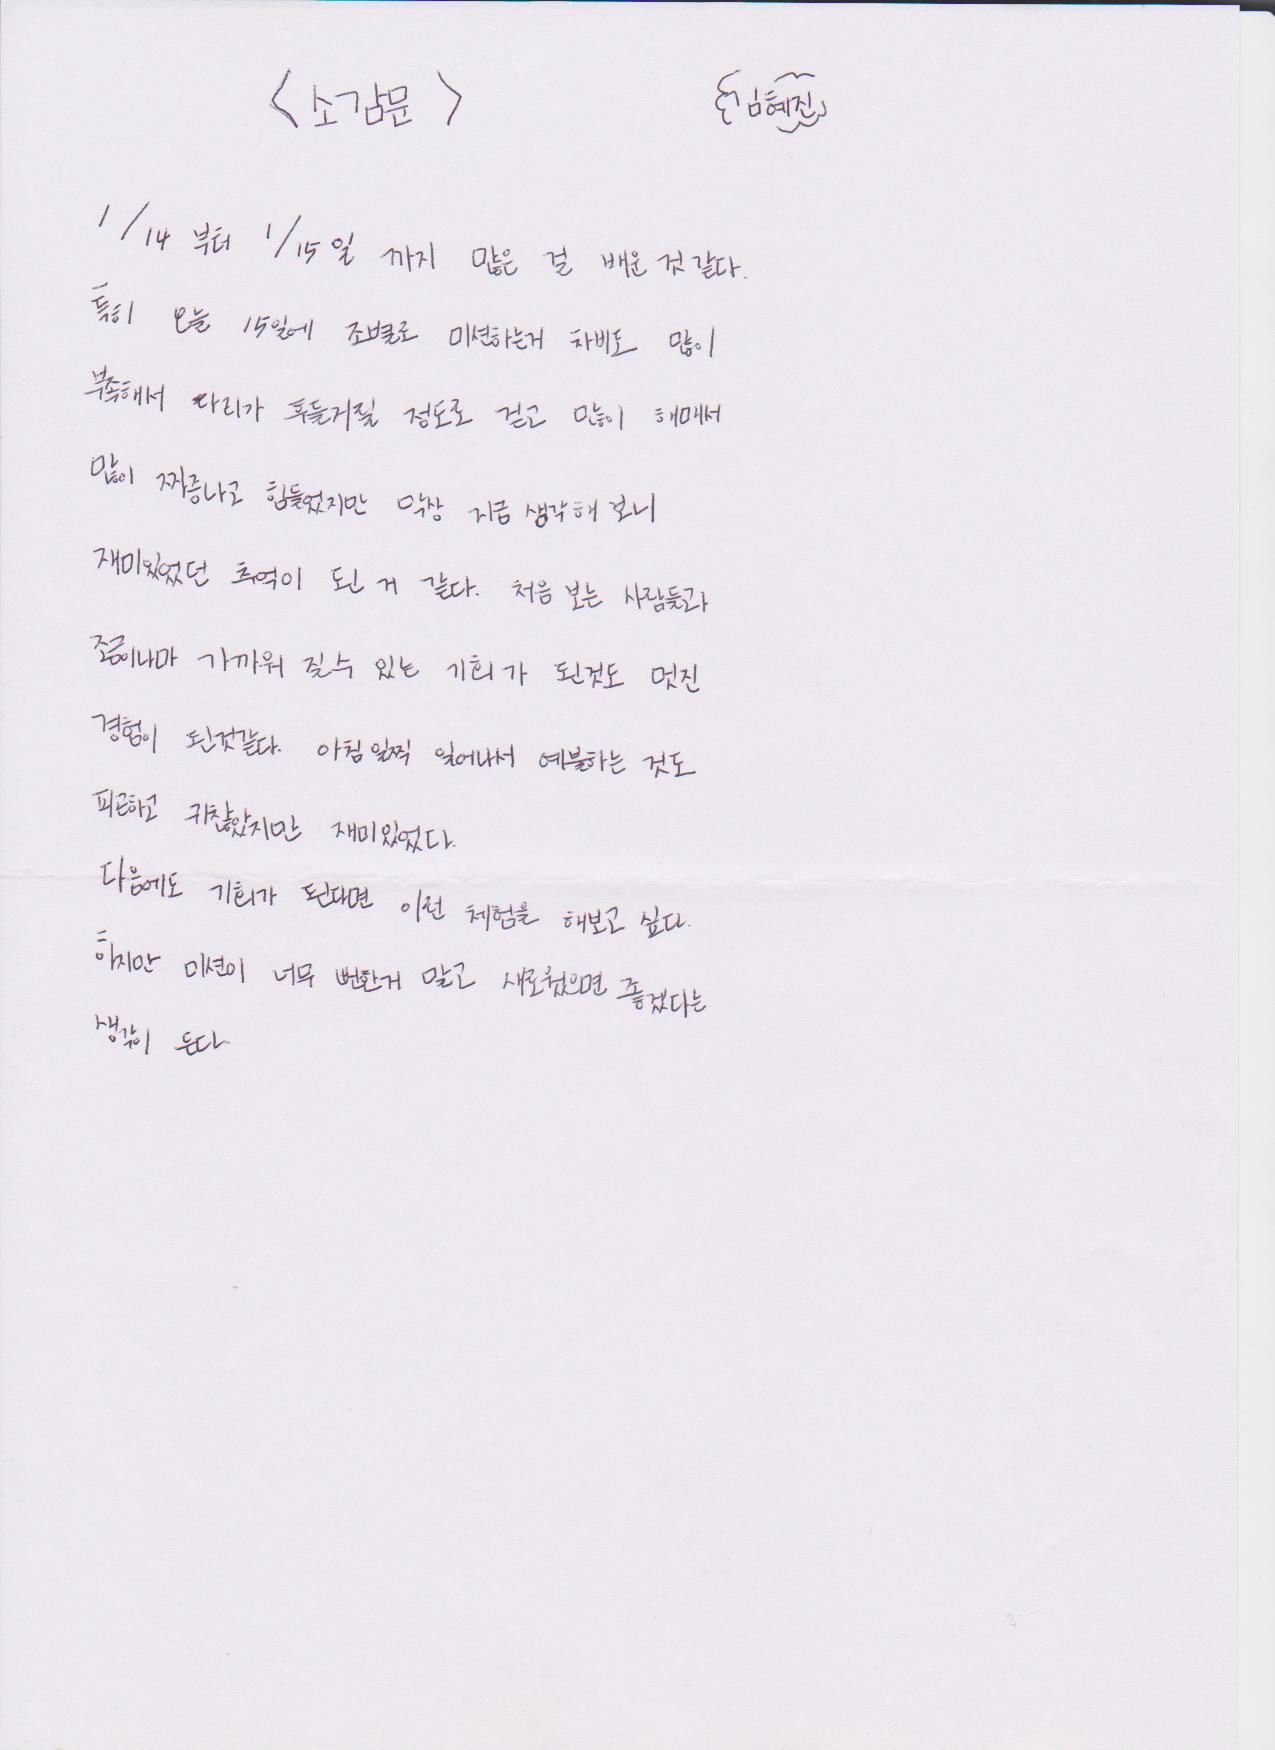 <소감문> 김혜진
1/14 부터 1/15일 까지 많은 걸 배운 것 같다.
특히 오늘 15일에 조별로 미션하는거 차비도 많이
부족해서 다리가 후들거릴 정도로 걷고 많이 해매서
많이 짜증나고 힘들었지만 막상 지금 생각해 보니
재미있었던 추억이 된 거 같다. 처음 보는 사람들과
조금이나마 가까워 질수 있는 기회가 된것도 멋진
경험이 된것같다. 아침 일찍 일어나서 예불하는 것도
피곤하고 귀찮았지만 재미있었다.
다음에도 기회가 된다면 이런 체험을 해보고 싶다.
하지만 미션이 너무 뻔한거 말고 새로웠으면 좋겠다는
생각이 든다.